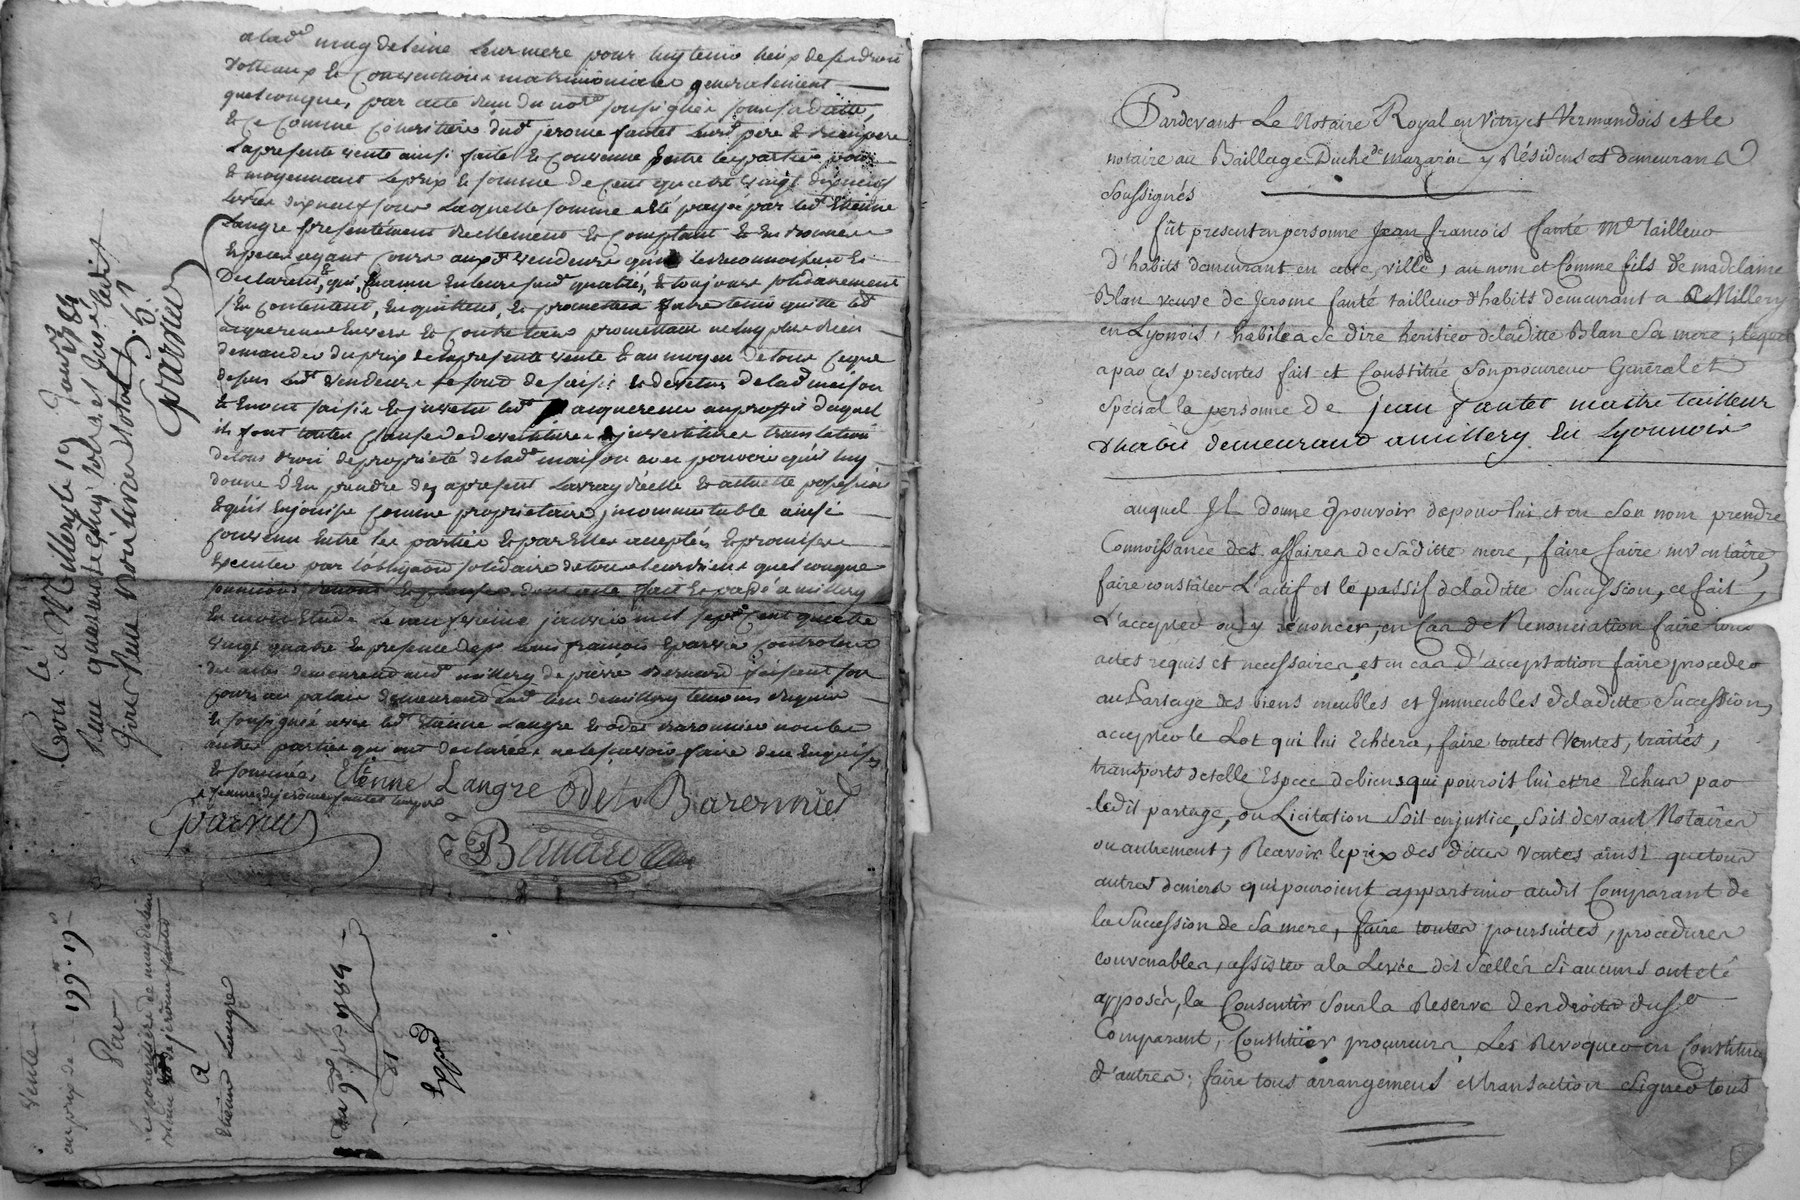 a lad.e magdeleine leur mere pour luy tenir lieu de ses droits
dotteaux et Conventions matrimoniales generalement
quelconque, par acte reçu du not.re soussigné sous sa datte,
et ce comme heritiers dud.t jerome fantet leurd.t pere
la presente vente ainsi faite et convenue entre les parties pour
et moyennant le prix et somme de Cent quatre vingt dix neuf
livres dix neuf sous laquelle somme a eté payée par led.t Etienne
Langre presentement reellement et comptant
Especes ayant cours auxd.t vendeurs qui le reconnoissent et
Declarent, qui, comme en leursusd.t qualités, et toujours solidairement
s'en contentent, en quittent, et promettent faire tenir quitte led.t
acquereur envers et contre tous promettant ne luy plus rien
demander du prix de la presente vente et au moyen de tout ce que
dessus led.t vendeurs se sont desaisis et devetus de lad.te maison
et en ont saisi et investu led.t acquereur au proffit duquel
ils font toutes clauses de devestiture investiture translation
de tous droits de proprieté de lad.te maison avec pouvoir qu'ils luy
donne d'en prendre dez apresent la vray réelle et actuelle possession
et qu'il en jouisse comme proprietaire, incommutable ainsi
convenu entre les parties et par elles acceptés et promis
executer par l'obligaon solidaire de tous leurs biens quelconque
dont acte fait et passé a millery
en mon Etude le neufvieme janvier mil sept Cent quatre
vingt quatre en presence de s.r Louis françois Eparvier Controleur
des actes demeurant aud.t millery de pierre Bernard faiseur
demeurant aud.t lieu de millery temoins requis
et soussignés avec led.t Etienne Langre et odet Baronnier non les
autres parties qui ont declarées ne le sçavoir faire de ce Enquises
et sommées
Etienne Langre Odet Baronnier
Eparvier
Bernard
Con.lé a Millery le 19 Janv.r 1784
Reçu quarante cinq sols et
Eparvier
Vente
au prix de 199.tt 19.s
Par
Les heritiers de magdeleine
Blanc de jerôme fantet
A
Etienne Langre
du 9.e j.er 1784
Exp.é
Pardevant Le Notaire Royal en Vitry et Vermandois et le
notaire au Baillage Duché de mazarin y Résidens et demeurans
Soussignés
fût present en personne Jean françois fanté M.e Tailleur
d'habits demeurant en cette ville, au nom et Comme fils de madelaine
Blan veuve de Jerome fanté tailleur d'habits demeurant a Millery
en Lyonois, habile a Se dire heritier de laditte Blan Sa mere, lequel
a par ces presentes fait et Constitué Son procureur Général et
Spécial la personne De jean fantet maitre tailleur
dhabit demeurand amillery En Lyonnois
auquel Jl donne pouvoir de pour lui et en Son nom prendre
Connoissance des affaires de Saditte mere, faire faire inventaire,
faire constater L'actif et le passif de laditte Succession, ce fait,
L'accepter ou y renoncer, en Cas de Renonciation faire tous
actes requis et necessaires, et en cas D'acceptation faire proceder
au Partage des biens meubles et Jmmeubles de laditte Succession,
accepter le Lot qui lui Echéera, faire toutes Ventes, traités,
transports de telle Espece de biens qui pouroit lui etre Echus par
ledit partage, ou Licitation Soit en justice, Soit devant Notaires
ou autrement; Recevoir le prix des dittes Ventes ainsi que tous
autres deniers qui pouroient appartenir audit Comparant de
la Succession de Sa mere, faire toutes poursuites, procedures
convenables, assister a la Levée des Scellés Si aucuns ont eté
apposés, la Consentir Sous la Reserve des droits dud.t
Comparant, Constituer procureurs, Les Revoquer en Constituer
d'autres; faire tous arrangemens et transaction Signer tous